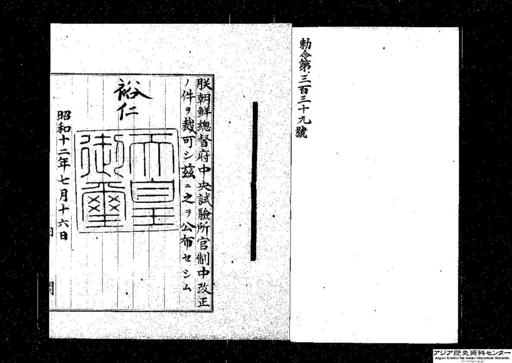 勅令第三百三十九號
朕朝鮮總督府中央試驗所官制中改正
ノ件ヲ裁可シ茲ニ之ヲ公布セシム
裕仁
天皇
御璽
昭和十二年七月十六日
アジア歴史資料センター
Japan Center for Asian Historical Records